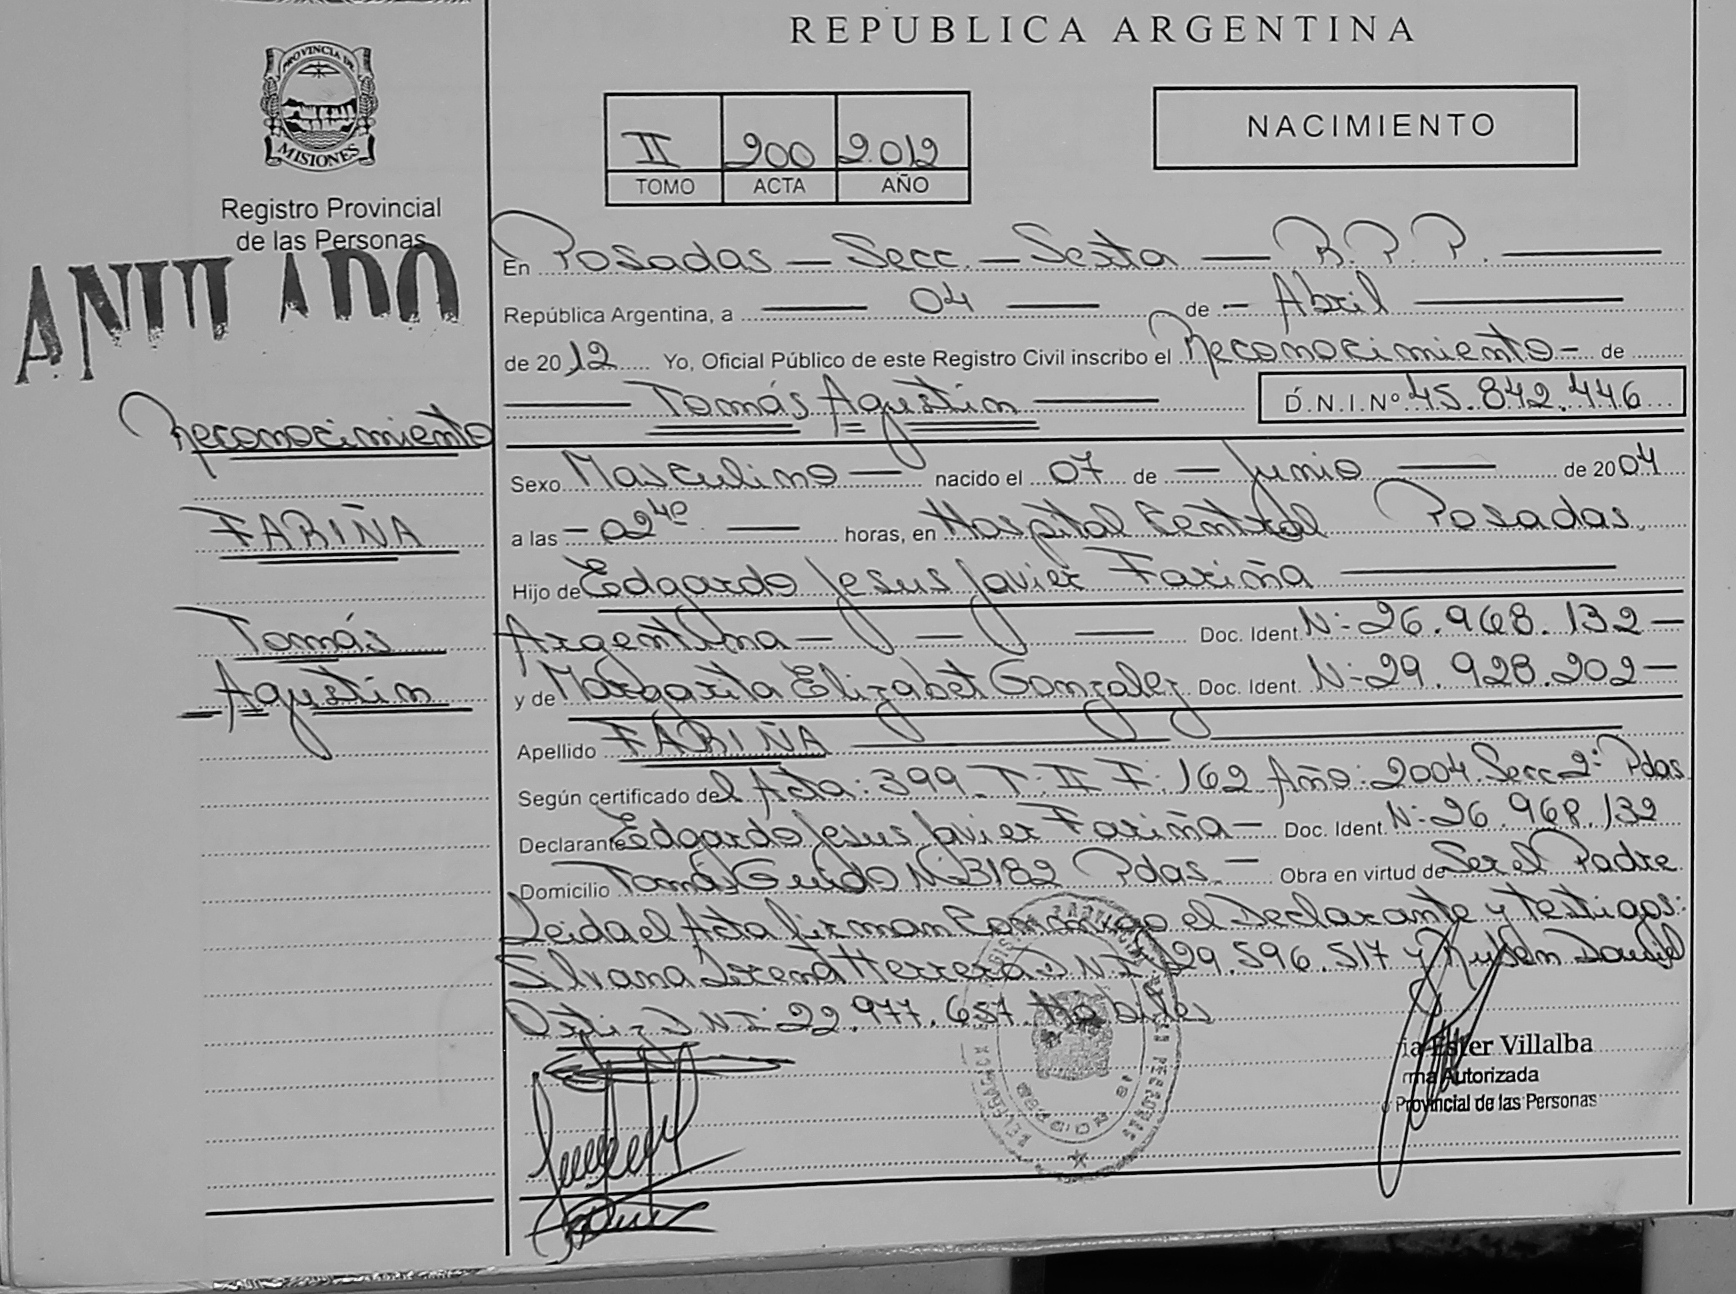 REPUBLICA ARGENTINA
PROVINCIA DE
MISIONES
Registro Provincial
de las Personas
ANULADO
II 200 2.012
TOMO ACTA AÑO
NACIMIENTO
En Posadas — Secc. — Sexta — R.P.P.
República Argentina, a — 04 — de — Abril —
de 2012 Yo, Oficial Público de este Registro Civil inscribo el Reconocimiento — de
— Tomás Agustin — D.N.I.Nº 45.842.446
Reconocimiento
FARIÑA
Tomás
Agustin
Sexo Masculino — nacido el 07 de — Junio — de 2004
a las — 02 40 — horas, en Hospital Central Posadas
Hijo de Edgardo Jesus Javier Fariña —
Argentina — — — Doc. Ident. N: 26.968.132 —
y de Margarita Elizabet Gonzalez Doc. Ident. N: 29.928.202 —
Apellido FARIÑA —
Según certificado del Acta: 399 T: II F: 162 Año: 2004 Secc 2º Pdas
Declarante Edgardo Jesus Javier Fariña — Doc. Ident. N: 26.968.132
Domicilio Tomás Guido N: 3182 Pdas. — Obra en virtud de Ser el Padre
Leida el Acta firman Conmigo el Declarante y testigos:
Silvana Irena Herrera D.N.I: 29.596.517 y Ruben Daniel
Ortiz D.N.I: 22.977.657 Hábiles
Ester Villalba
Autorizada
Provincial de las Personas